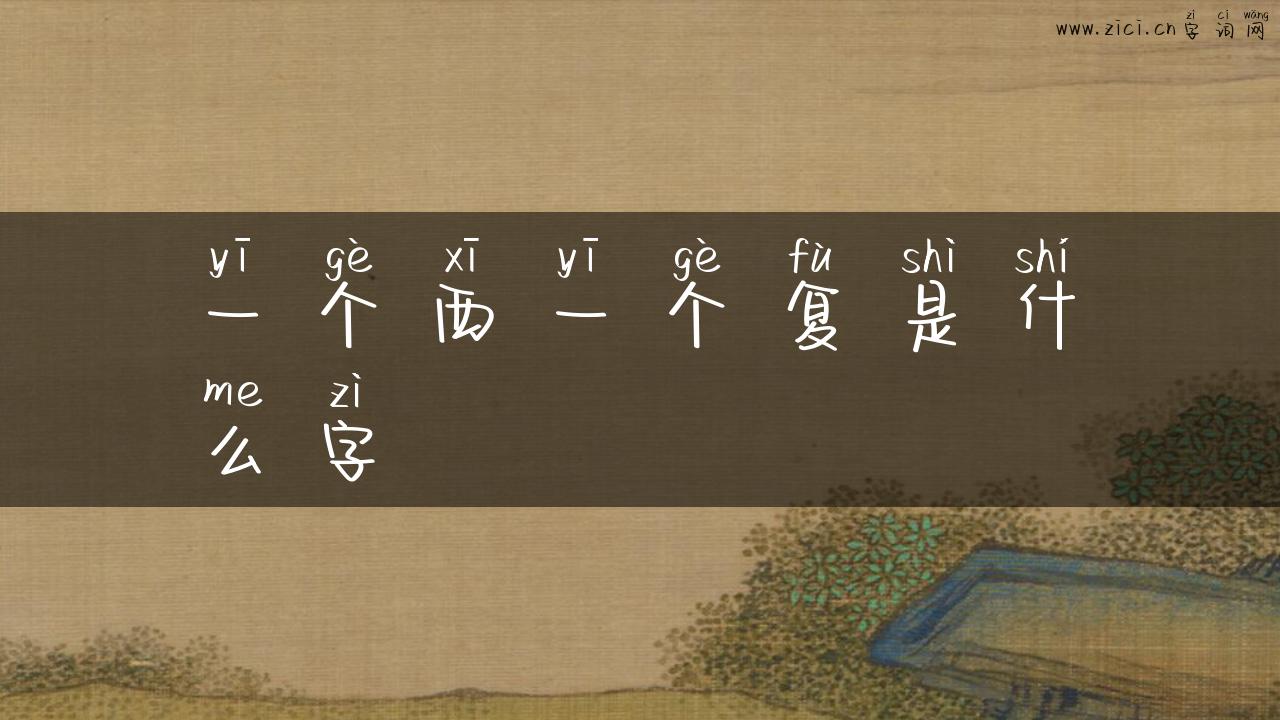 zì cí wǎng
www.zici.cn 字 词 网
yī gè xī yī gè fù shì shí
一 个 西 一 个 复 是 什
me zì
么 字